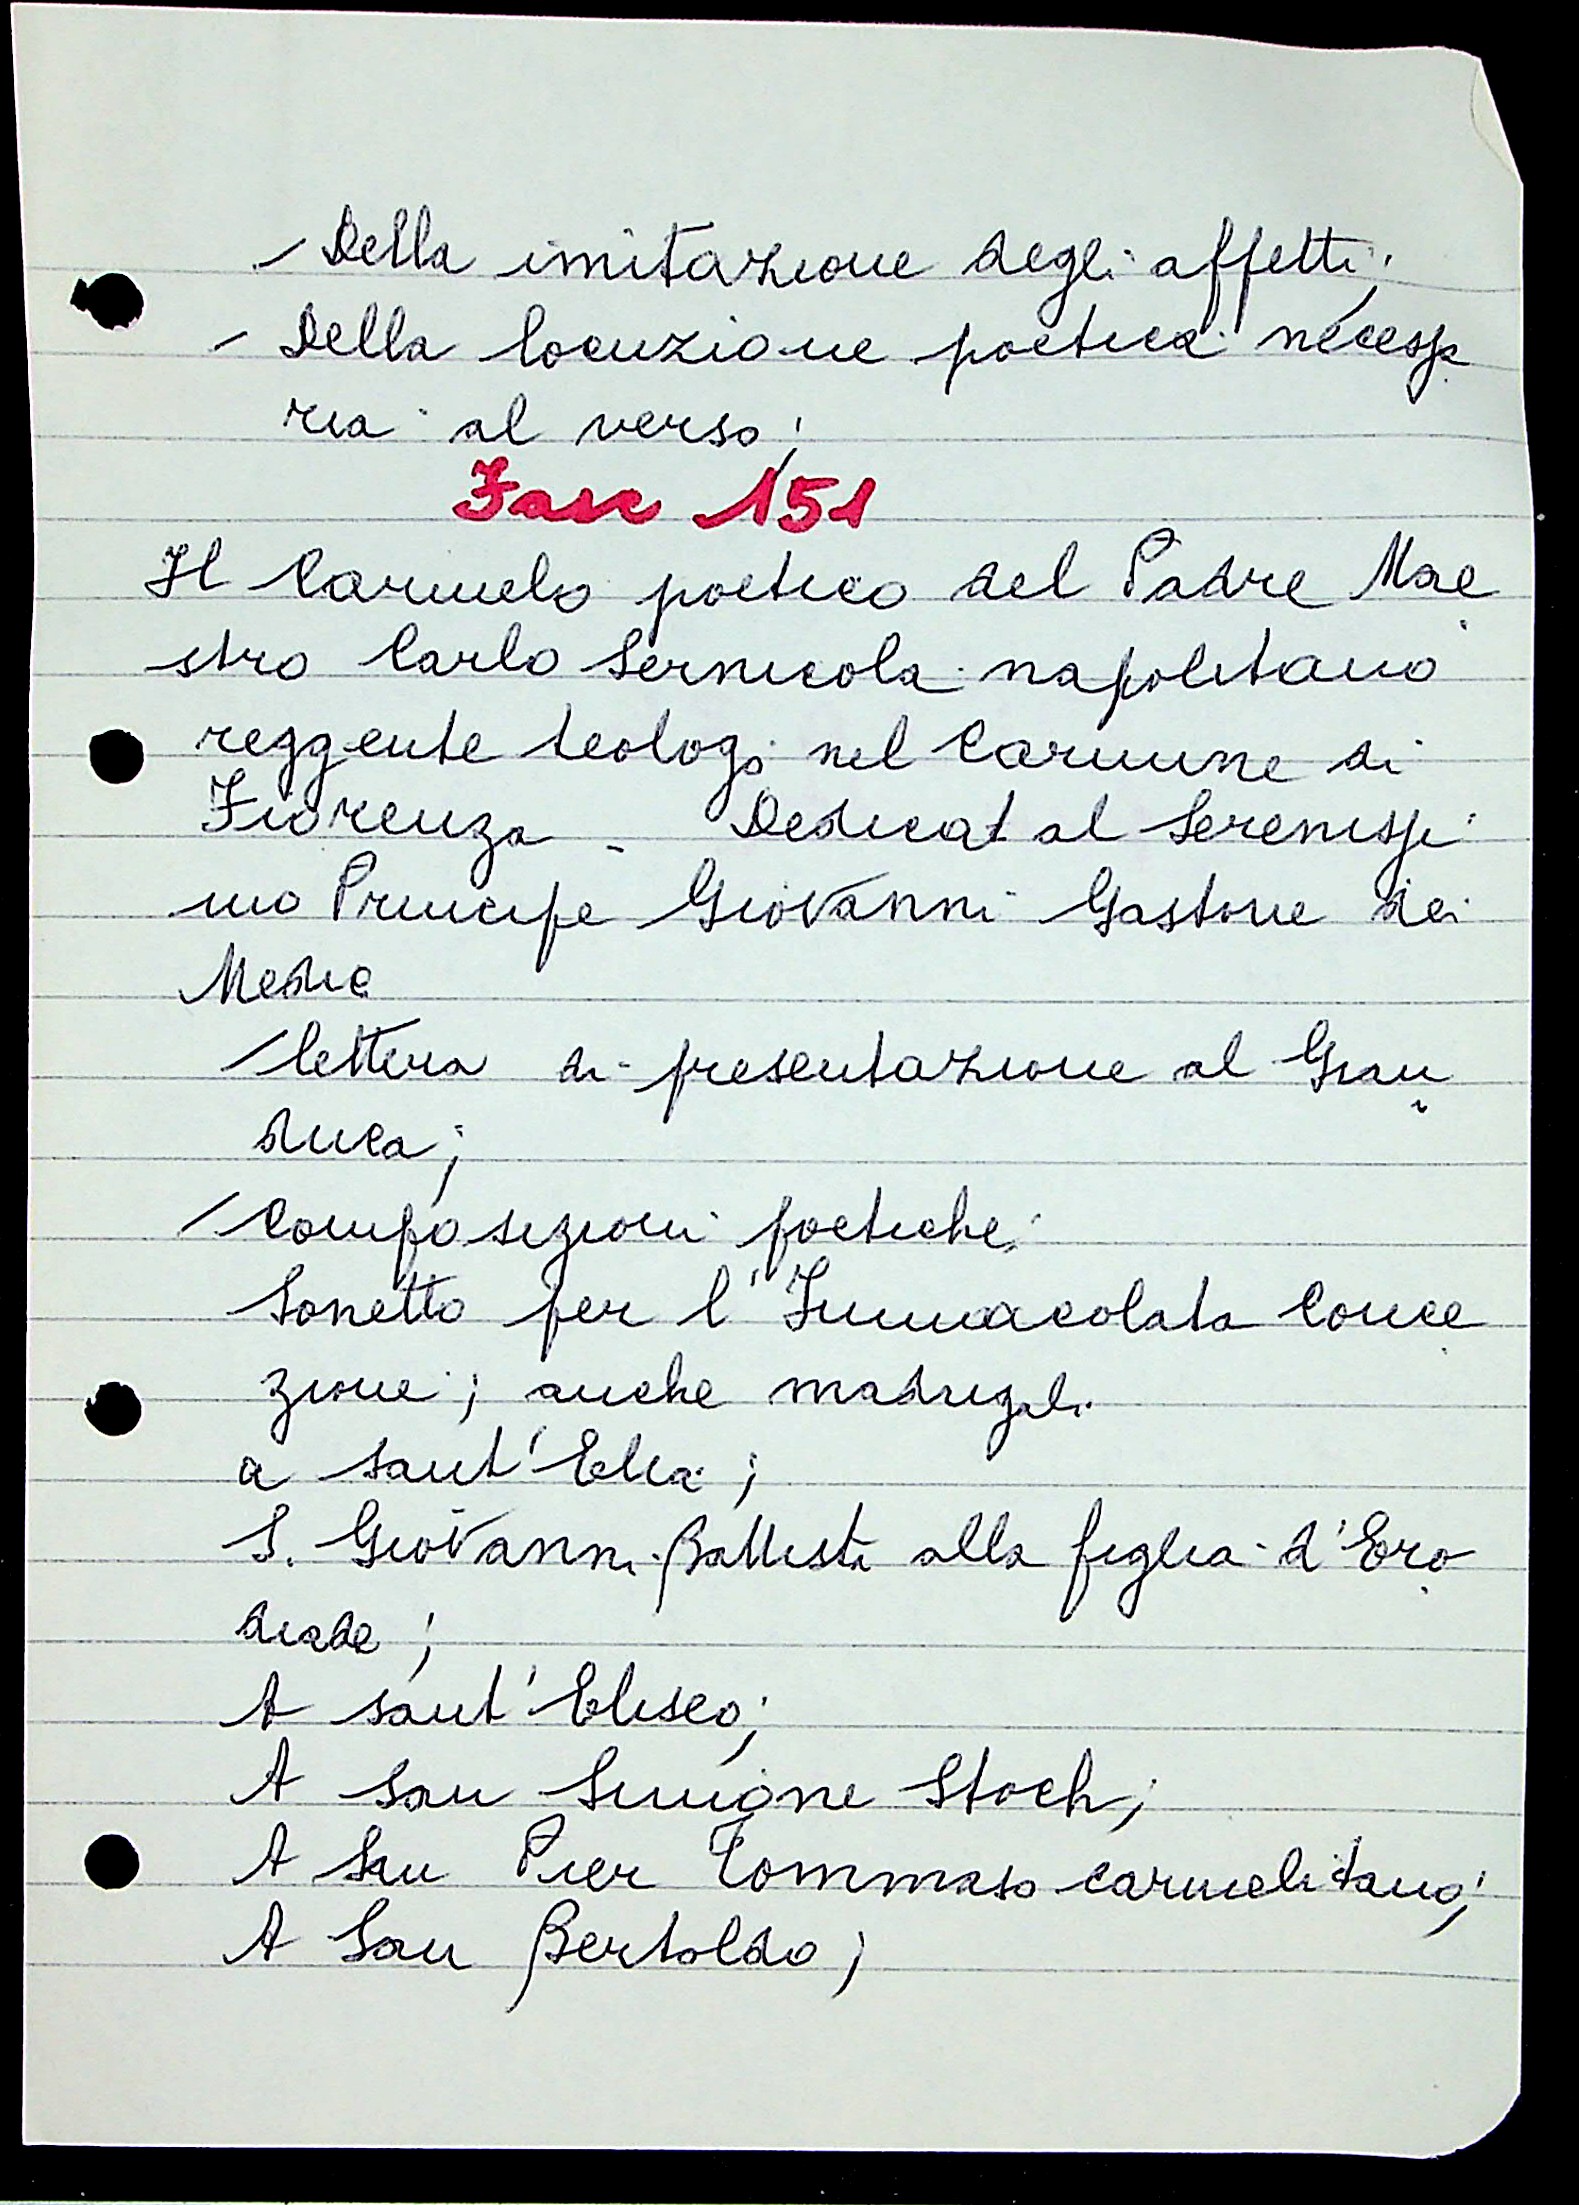 - Della imitazione degli affetti;
- Della locuzione poetica necessa
ria al verso;
Fasc 151
Il Carmelo poetico del Padre Mae
stro Carlo Sernicola napoletano
reggente teologo nel Carmine di
Fiorenza - Dedicat al Serenissi
mo Principe Giovanni Gastone dei
Medic
- lettera di presentazione al Gran
duca;
- Composizioni poetiche:
Sonetto per l'Immacolata Conce
zione; anche madrigali
a sant'Elia;
S. Giovanni Battista alla figlia d'Ero
diade;
A sant'Eliseo;
A San Simone Stoch;
A San Pier Tommaso carmelitano;
A San Bertoldo;